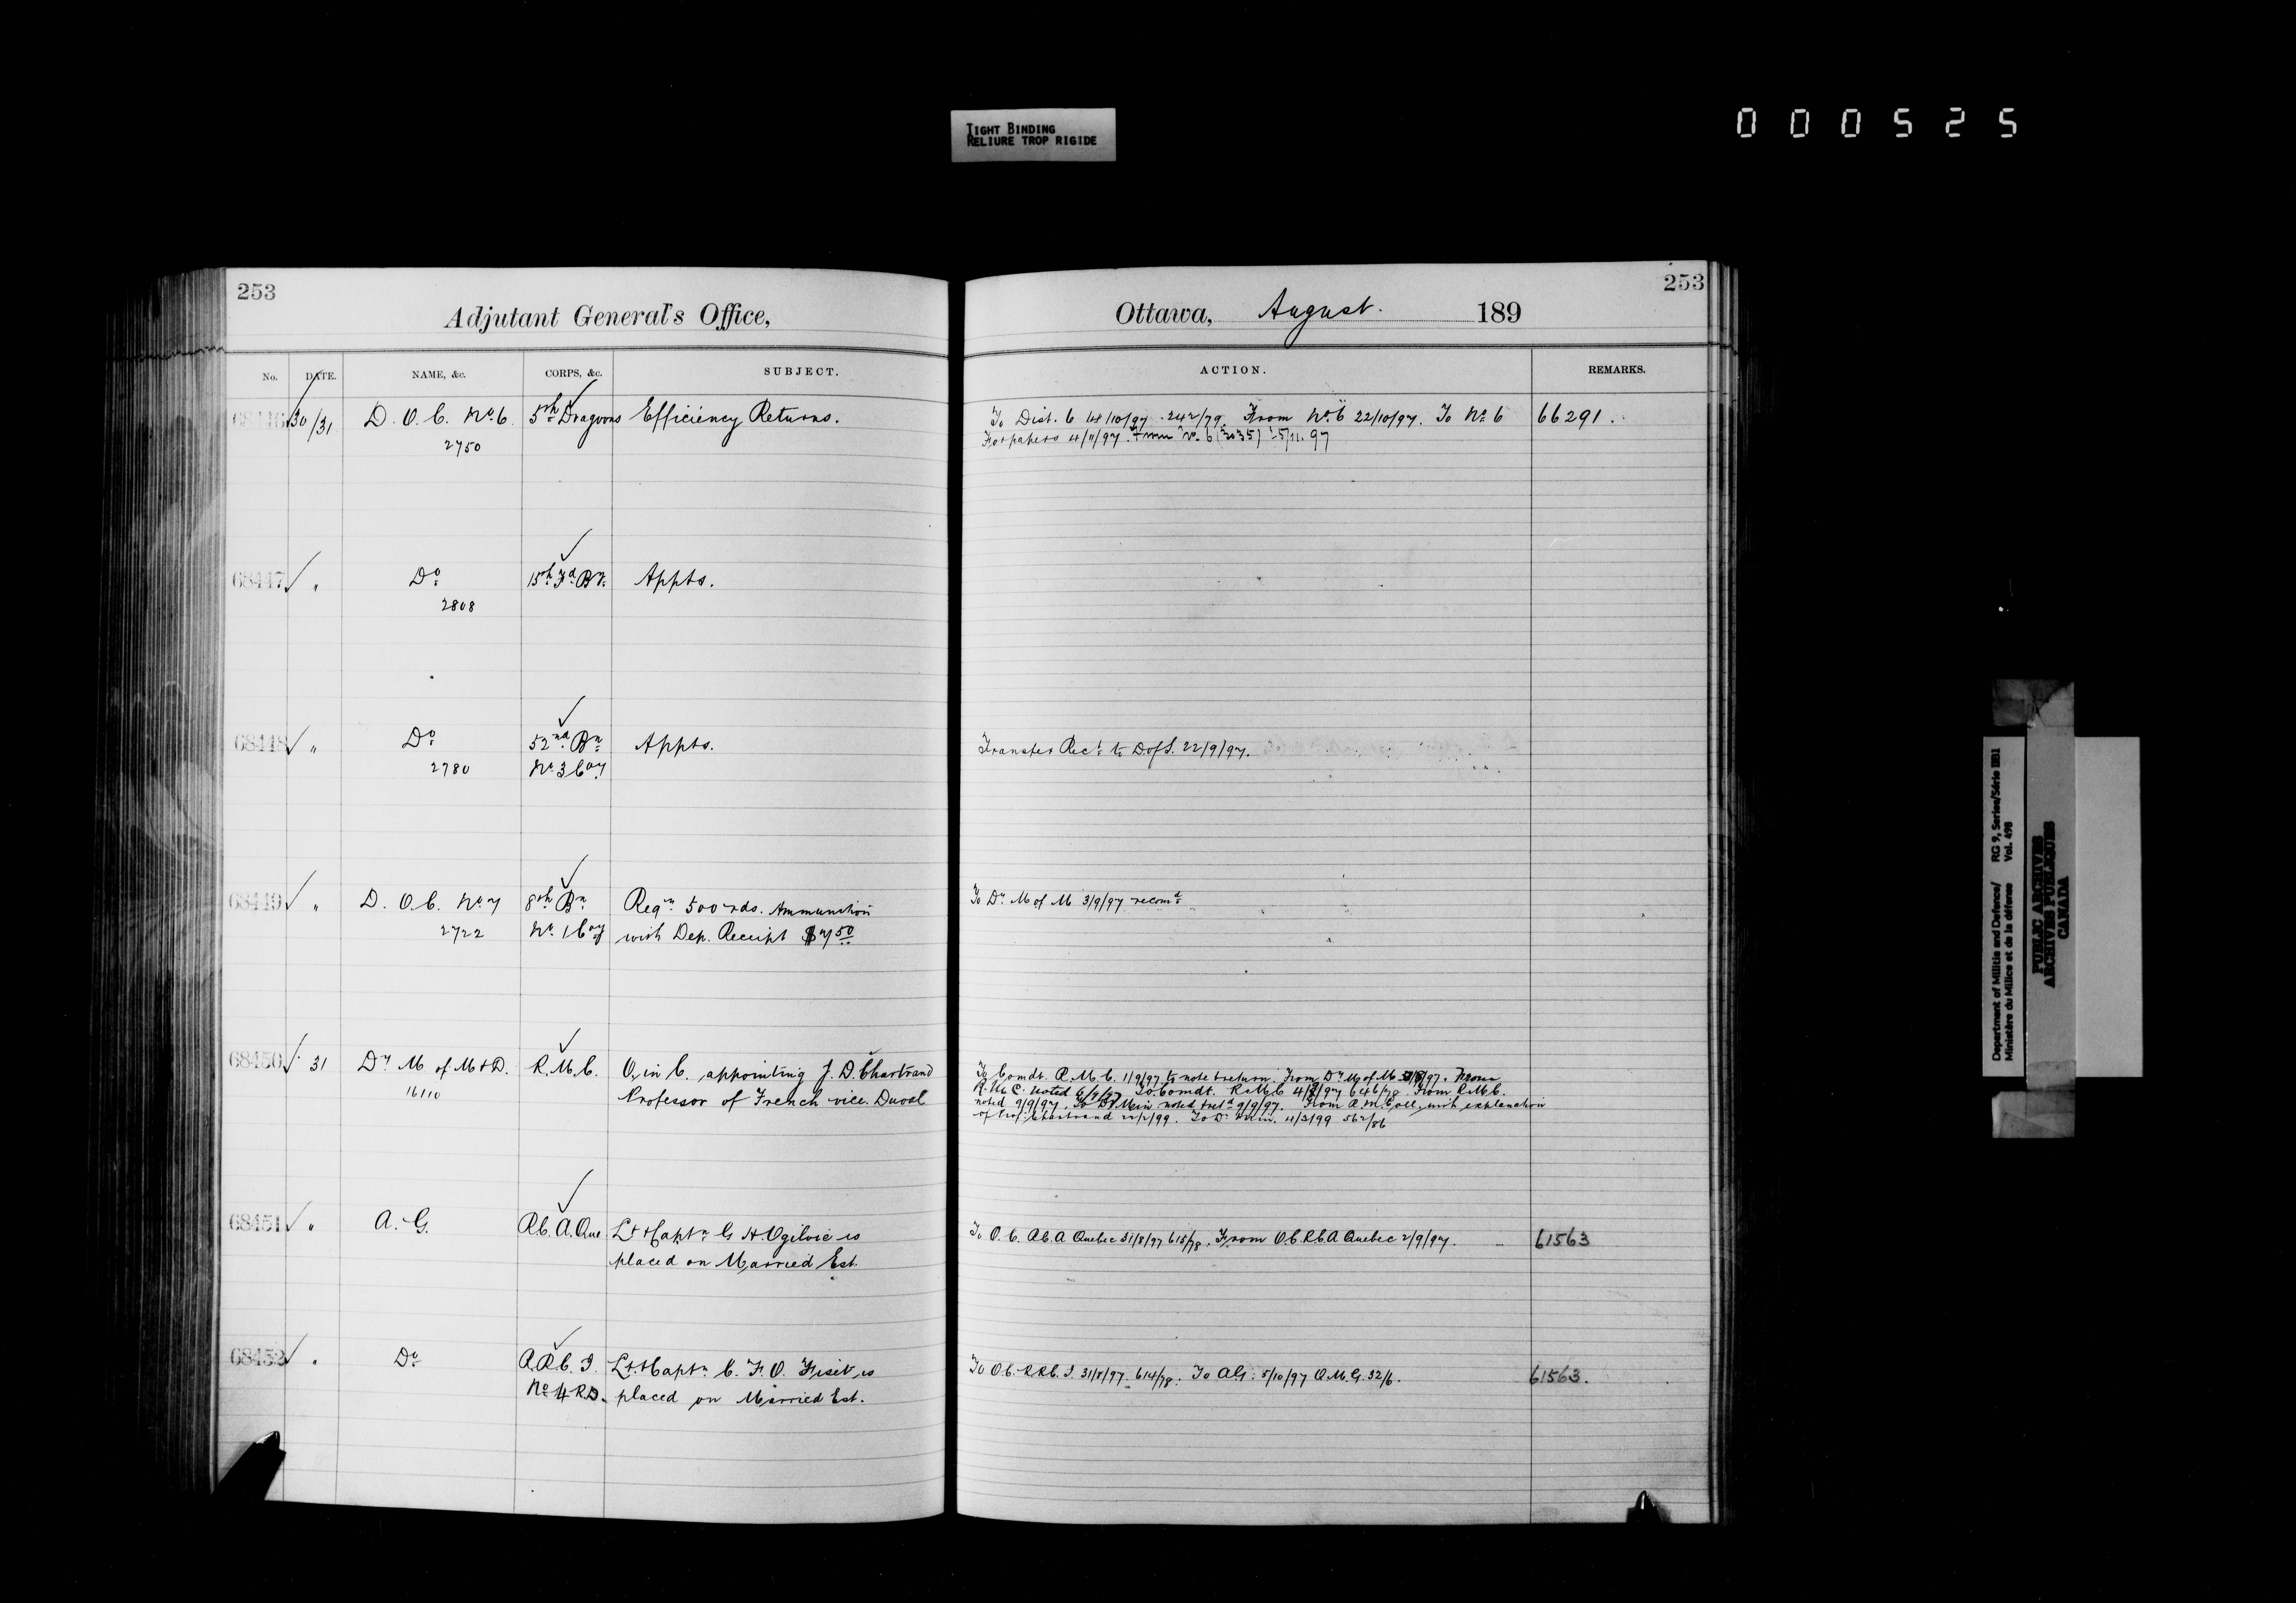 TIGHT BINDING
RELIURE TROP RIGIDE
000525
253
Adjutant General's Office,
No. DATE. NAME, &c. CORPS, &c. SUBJECT.
68446 30/31 D. O. C. No 6 5th Dragoons Efficiency Returns.
2750
68447 " Do 15th Fd By. Appts.
2808
68448 " Do 52nd Bn Appts.
2780 No 3 Coy
68449 " D. O. C. No 7 8th Bn Reqn 500 rds. Ammunition
2722 No 1 Coy with Dep. Receipt $7 50
68450 31 Dy M of M & D. R. M. C. O. in C. appointing J. D. Chartrand
16110 Professor of French vice Duval
68451 " A. G. R.C.A. Que Lt & Captn G H. Ogilvie is
placed on Married Est.
68452 " Do R.R.C.I. Lt. & Captn C. F. O. Fiset is
No 4 R.D. placed on Married Est.
253
Ottawa, August. 189
ACTION. REMARKS.
To Dist. 6 14/10/97 242/79. From No 6 22/10/97. To No 6 66291.
For papers 4/11/97. From No. 6 (3035) 5/11.97
Transfer Rect to D of S. 22/9/97.
To Dy M of M 3/9/97 recomd
To Comdt. R. M. C. 1/9/97 to note & return. From Dy M of M /97. From
R. M. C. noted 6/9/97 To Comdt. R.M.C 4/9/97 646/78. From R.M.C.
noted 9/9/97. To Dy Min noted & retd 9/9/97. From R.M. Coll. with explanation
of Prof. Chartrand /99. To Dy Min. 11/3/99 562/86
To O. C. R.C.A Quebec 31/8/97 615/78. From O.C. R.C.A Quebec 2/9/97. 61563
To O.C. R.R.C.I. 31/8/97 614/78. To AG. 5/10/97 Q.M.G. 32/6. 61563.
Department of Militia and Defence/ RG 9, Series/Série IIB1
Ministère du Milice et de la défense Vol. 498
PUBLIC ARCHIVES
ARCHIVES PUBLIQUES
CANADA